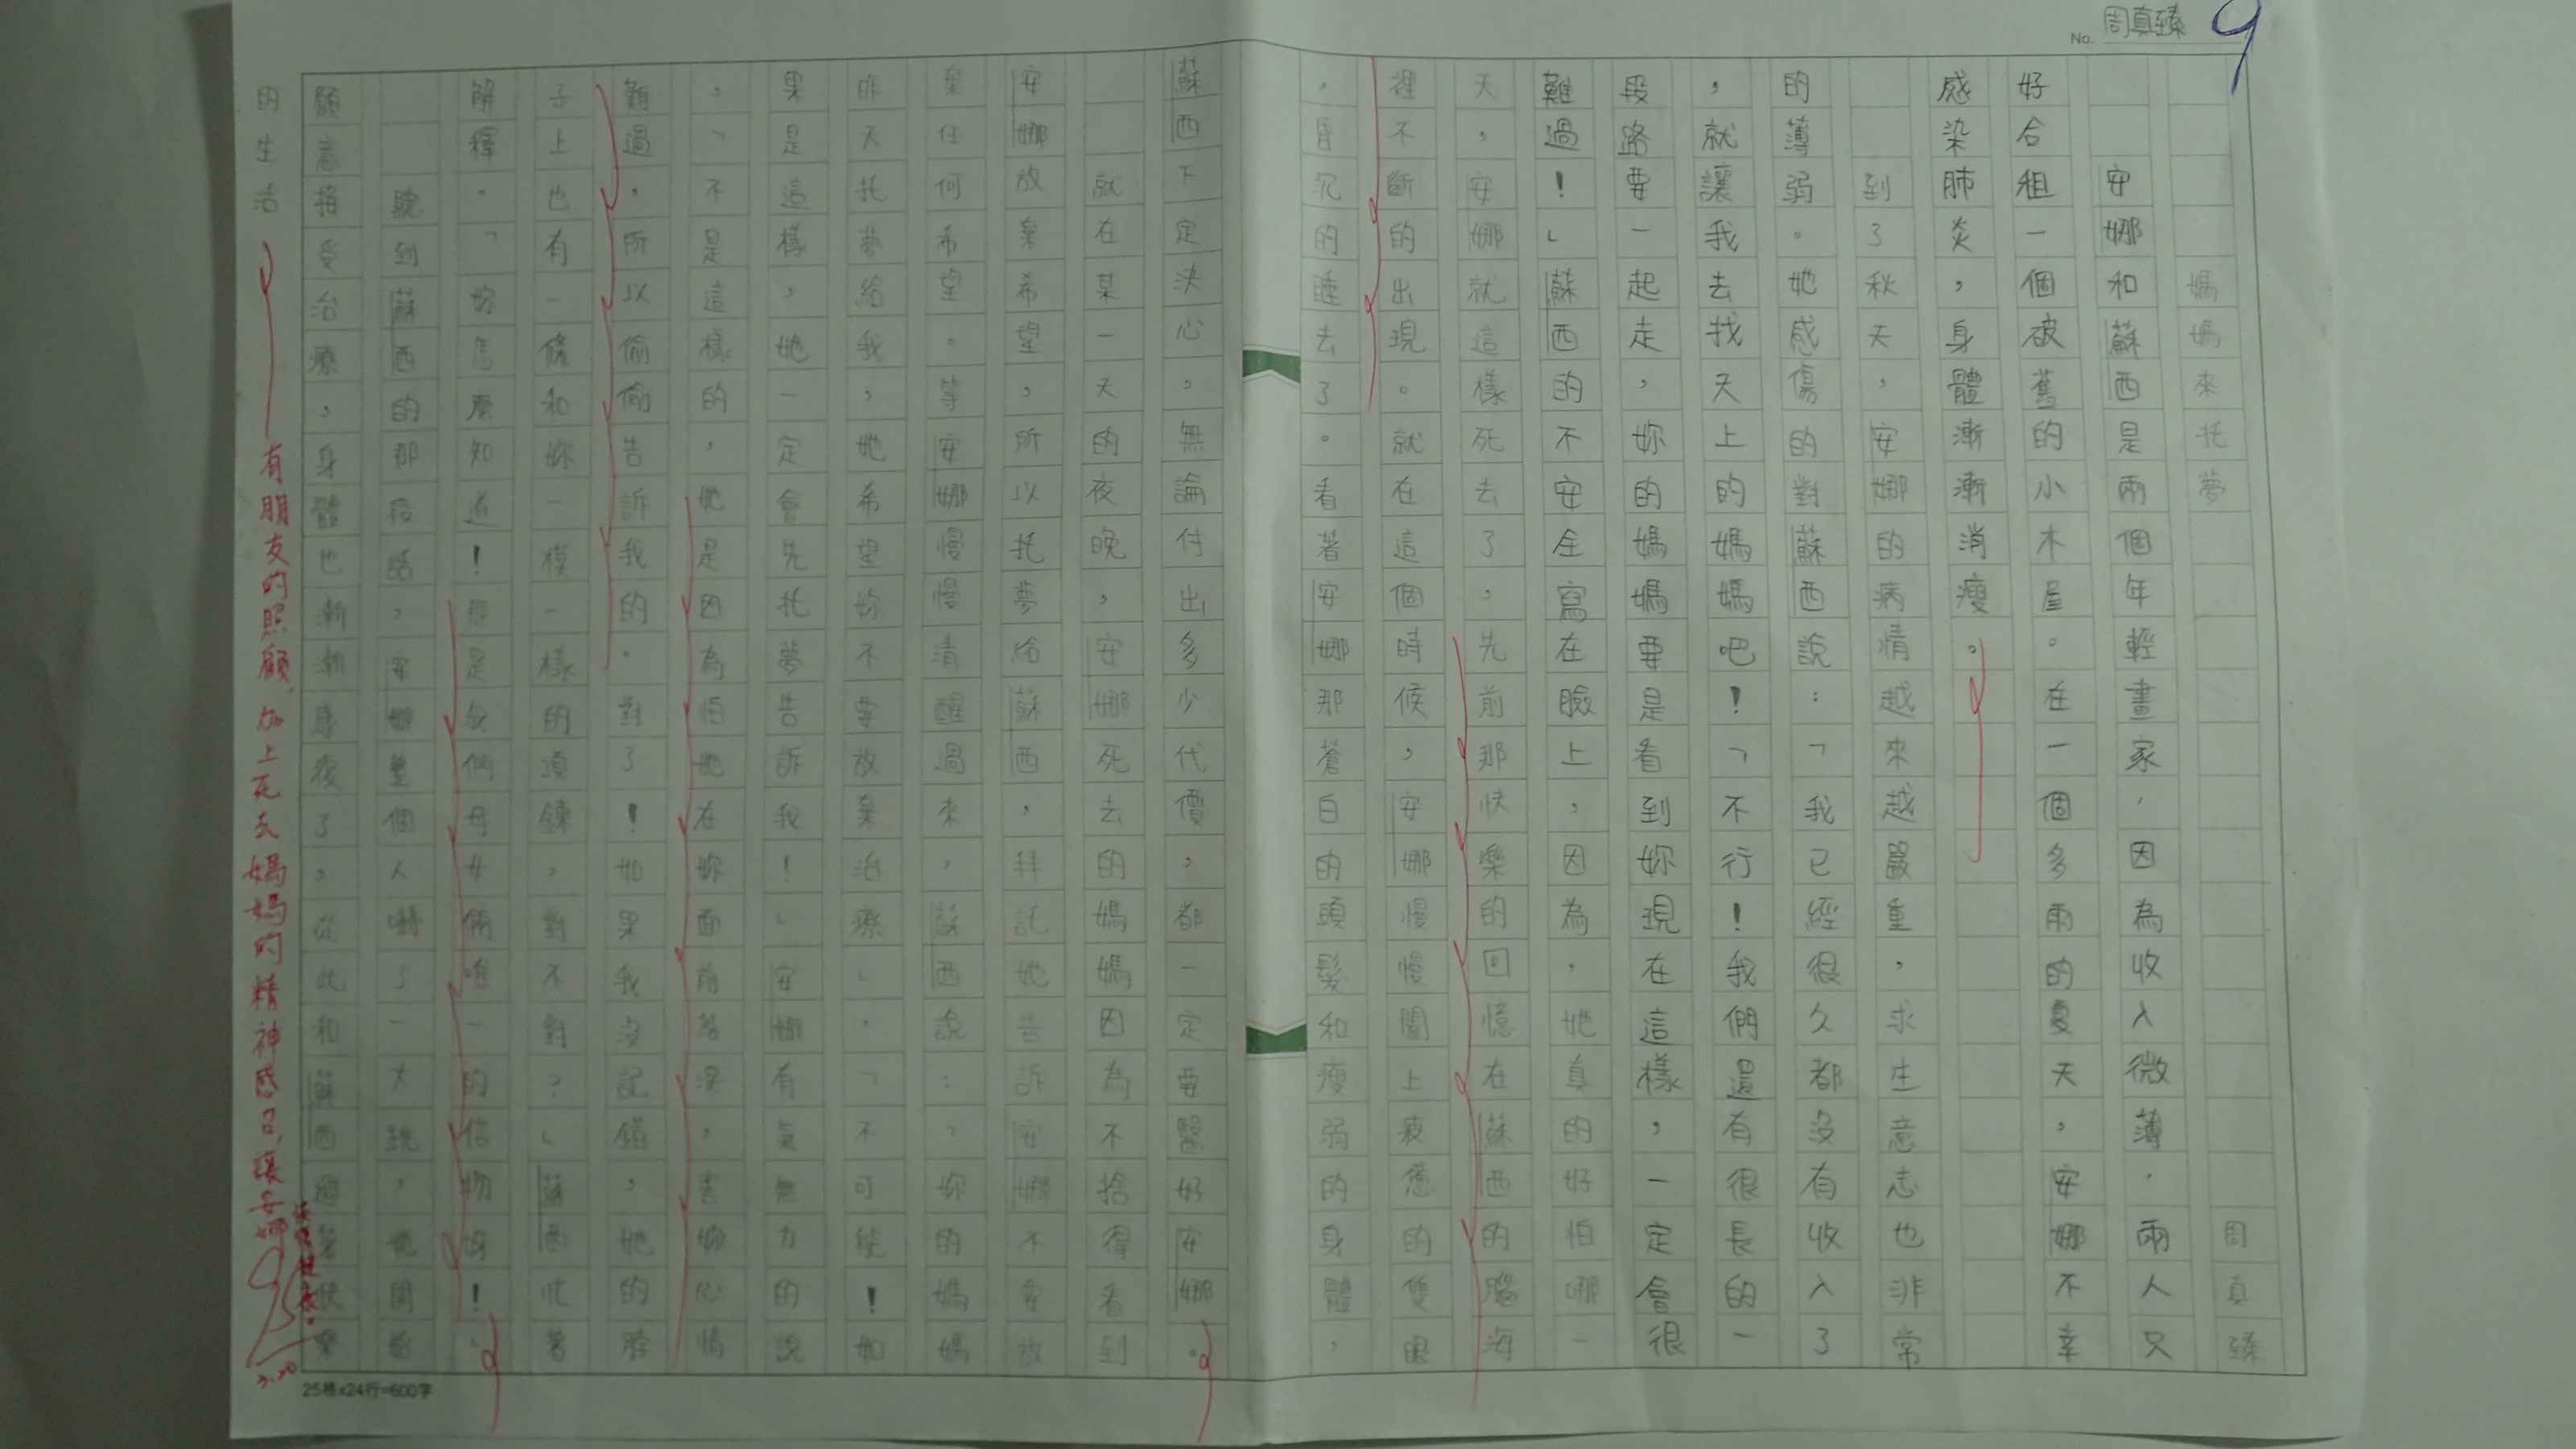 No. 周真臻
9
媽媽來托夢 周真臻
安娜和蘇西是兩個年輕畫家，因為收入微薄，兩人只
好合租一個破舊的小木屋。在一個多雨的夏天，安娜不幸
感染肺炎，身體漸漸消瘦。
到了秋天，安娜的病情越來越嚴重，求生意志也非常
的薄弱。她感傷的對蘇西說：「我已經很久都沒有收入了
，就讓我去找天上的媽媽吧！」「不行！我們還有很長的一
段路要一起走，妳的媽媽要是看到妳現在這樣，一定會很
難過！」蘇西的不安全寫在臉上，因為，她真的好怕哪一
天，安娜就這樣死去了，先前那快樂的回憶在蘇西的腦海
裡不斷的出現。就在這個時候，安娜慢慢闔上疲憊的雙眼
，昏沉的睡去了。看著安娜那蒼白的頭髮和瘦弱的身體，
蘇西下定決心，無論付出多少代價，都一定要醫好安娜。
就在某一天的夜晚，安娜死去的媽媽因為不捨得看到
安娜放棄希望，所以托夢給蘇西，拜託她告訴安娜不要放
棄任何希望。等安娜慢慢清醒過來，蘇西說：「妳的媽媽
昨天托夢給我，她希望妳不要放棄治療」，「不可能！如
果是這樣，她一定會先托夢告訴我！」安娜有氣無力的說
，「不是這樣的，她是因為怕她在妳面前落淚，害妳心情
難過，所以偷偷告訴我的。對了！如果我沒記錯，她的脖
子上也有一條和妳一模一樣的項鍊，對不對？」蘇西忙著
解釋。「妳怎麼知道！那是我們母女倆唯一的信物呀！」
聽到蘇西的那段話，安娜整個人嚇了一大跳，她開始
願意接受治療，身體也漸漸康復了，從此和蘇西過著快樂
的生活
有朋友的照顧，加上死去媽媽的精神感召，讓安娜
95
3.30
25格x24行=600字